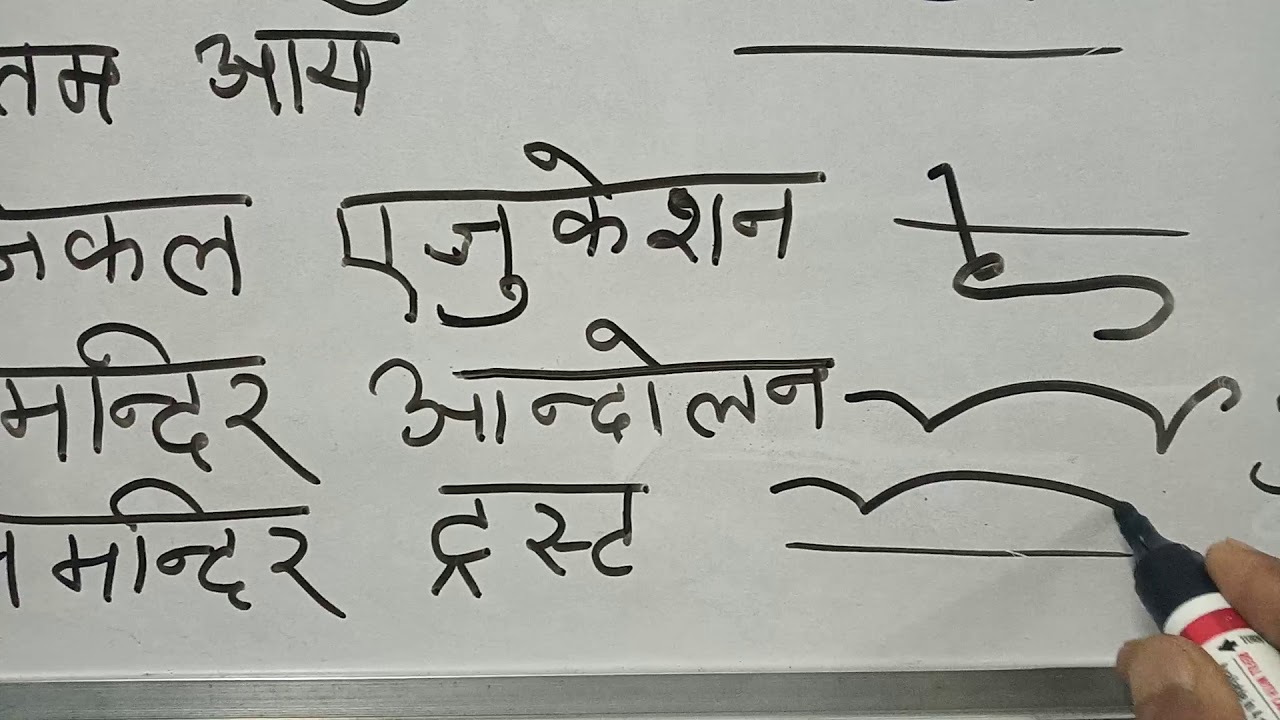 तम आय
एजुकेशन
मन्दिर आन्दोलन
मन्दिर ट्रस्ट